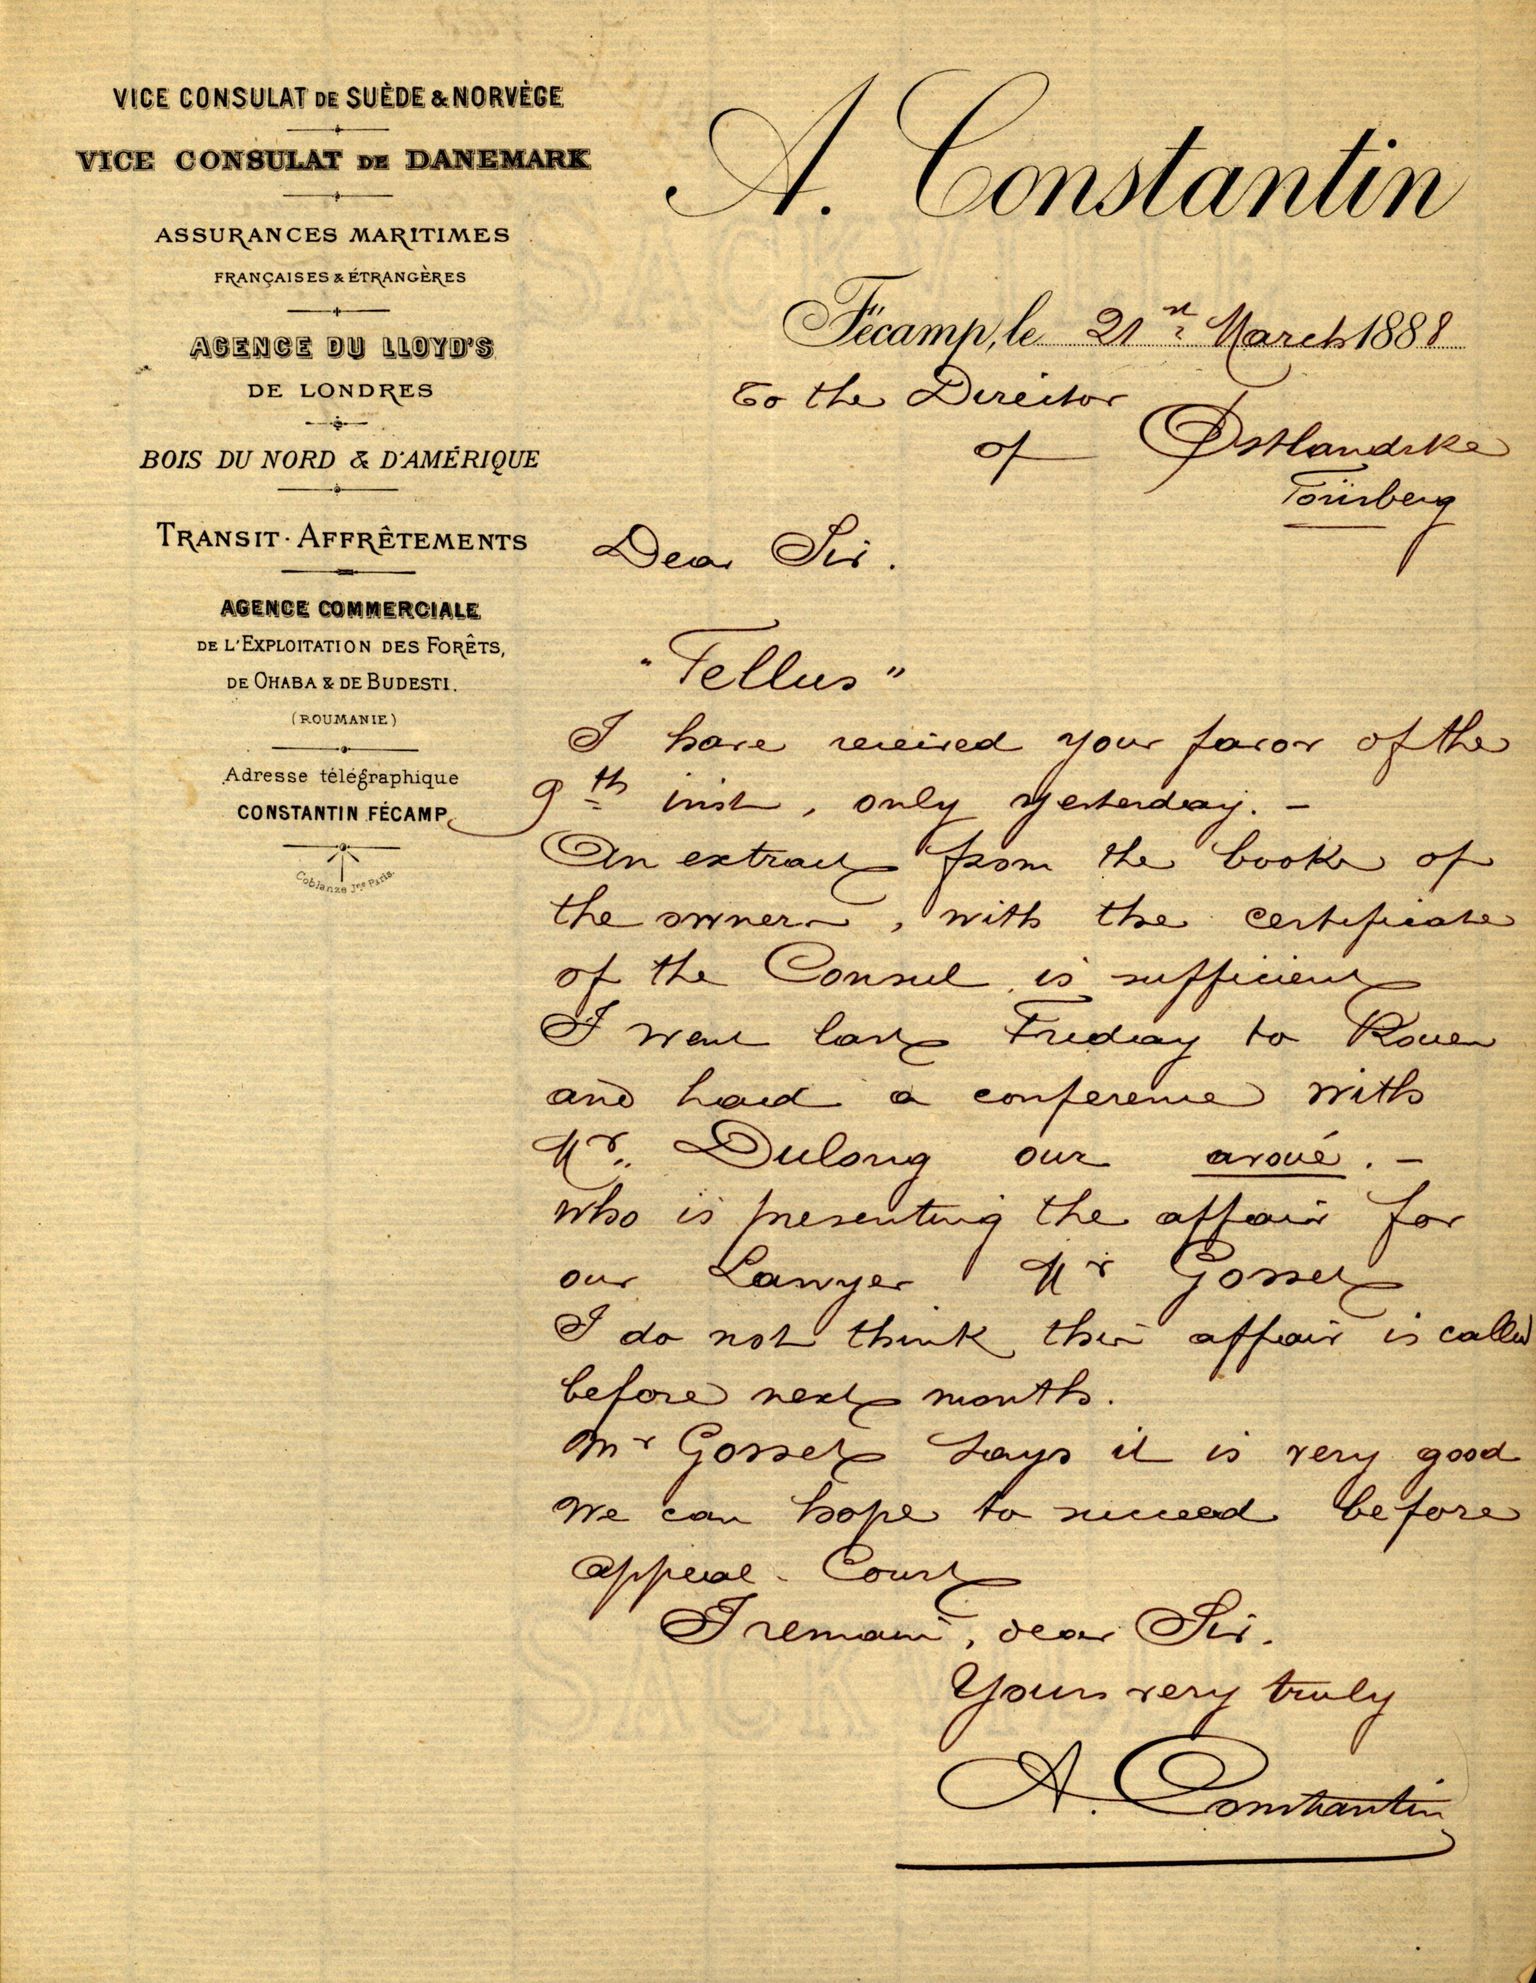 VICE CONSULAT DE SUÈDE & NORVÈGE
VICE CONSULAT DE DANEMARK
ASSURANCES MARITIMES
FRANÇAISES & ÉTRANGÈRES
AGENCE DU LLOYD'S
DE LONDRES
BOIS DU NORD & D'AMÉRIQUE
TRANSIT · AFFRÊTEMENTS
AGENCE COMMERCIALE
DE L'EXPLOITATION DES FORÊTS,
DE OHABA & DE BUDESTI.
(ROUMANIE)
Adresse télégraphique
CONSTANTIN FÉCAMP
Coblanze Jne Paris.
A. Constantin
Fécamp, le 21st March 1888
To the Director
of Østlandske
Tönsberg
Dear Sir.
"Tellus"
I have received your favor of the
9th inst, only yesterday. -
An extract from the books of
the owners, with the certificate
of the Consul is sufficient
I went last Friday to Rouen
and had a conference with
Mr. Dulong our avoué. -
who is presenting the affair for
our Lawyer Mr Gosset
I do not think this affair is called
before next month.
Mr Gosset says it is very good
we can hope to succeed before
appeal - Court
I remain, dear Sir.
Yours very truly
A. Constantin
SACKVILLE
SACKVILLE